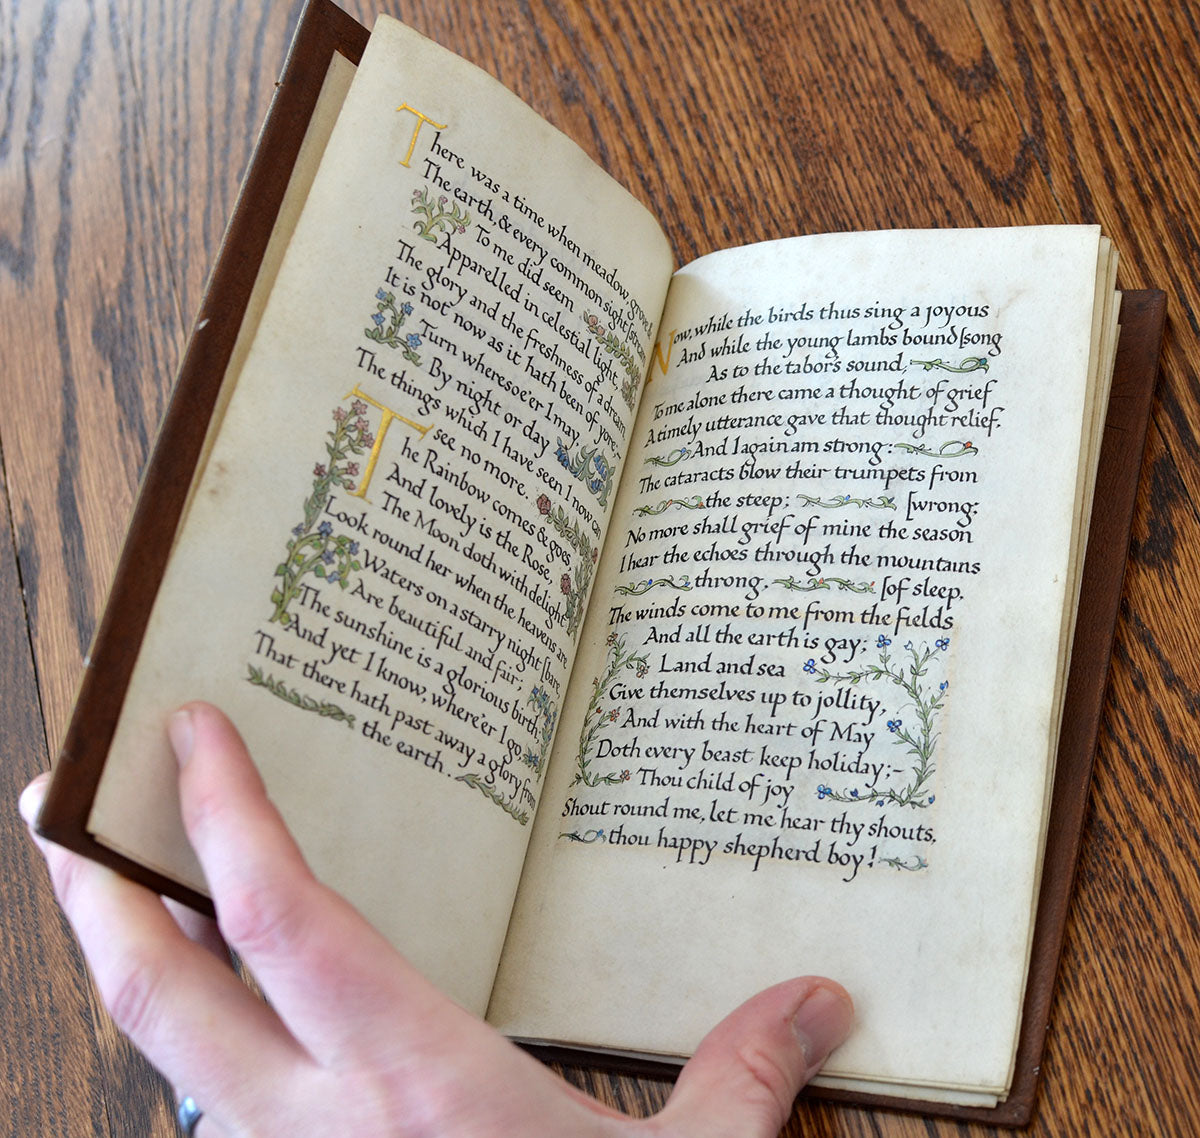 There was a time when meadow, grove &
The earth, & every common sight [stream
To me did seem
Apparelled in celestial light,
The glory and the freshness of a dream.
It is not now as it hath been of yore;–
Turn wheresoe'er I may,
By night or day
The things which I have seen I now can
see no more.
The Rainbow comes & goes,
And lovely is the Rose,
The Moon doth with delight
Look round her when the heavens are
Waters on a starry night [bare,
Are beautiful and fair;
The sunshine is a glorious birth,
And yet I know, where'er I go,
That there hath past away a glory from
the earth.
Now, while the birds thus sing a joyous
And while the young lambs bound [song
As to the tabor's sound,
To me alone there came a thought of grief
A timely utterance gave that thought relief.
And I again am strong:
The cataracts blow their trumpets from
the steep; [wrong:
No more shall grief of mine the season
I hear the echoes through the mountains
throng. [of sleep.
The winds come to me from the fields
And all the earth is gay;
Land and sea
Give themselves up to jollity,
And with the heart of May
Doth every beast keep holiday;–
Thou child of joy
Shout round me, let me hear thy shouts,
thou happy shepherd boy!